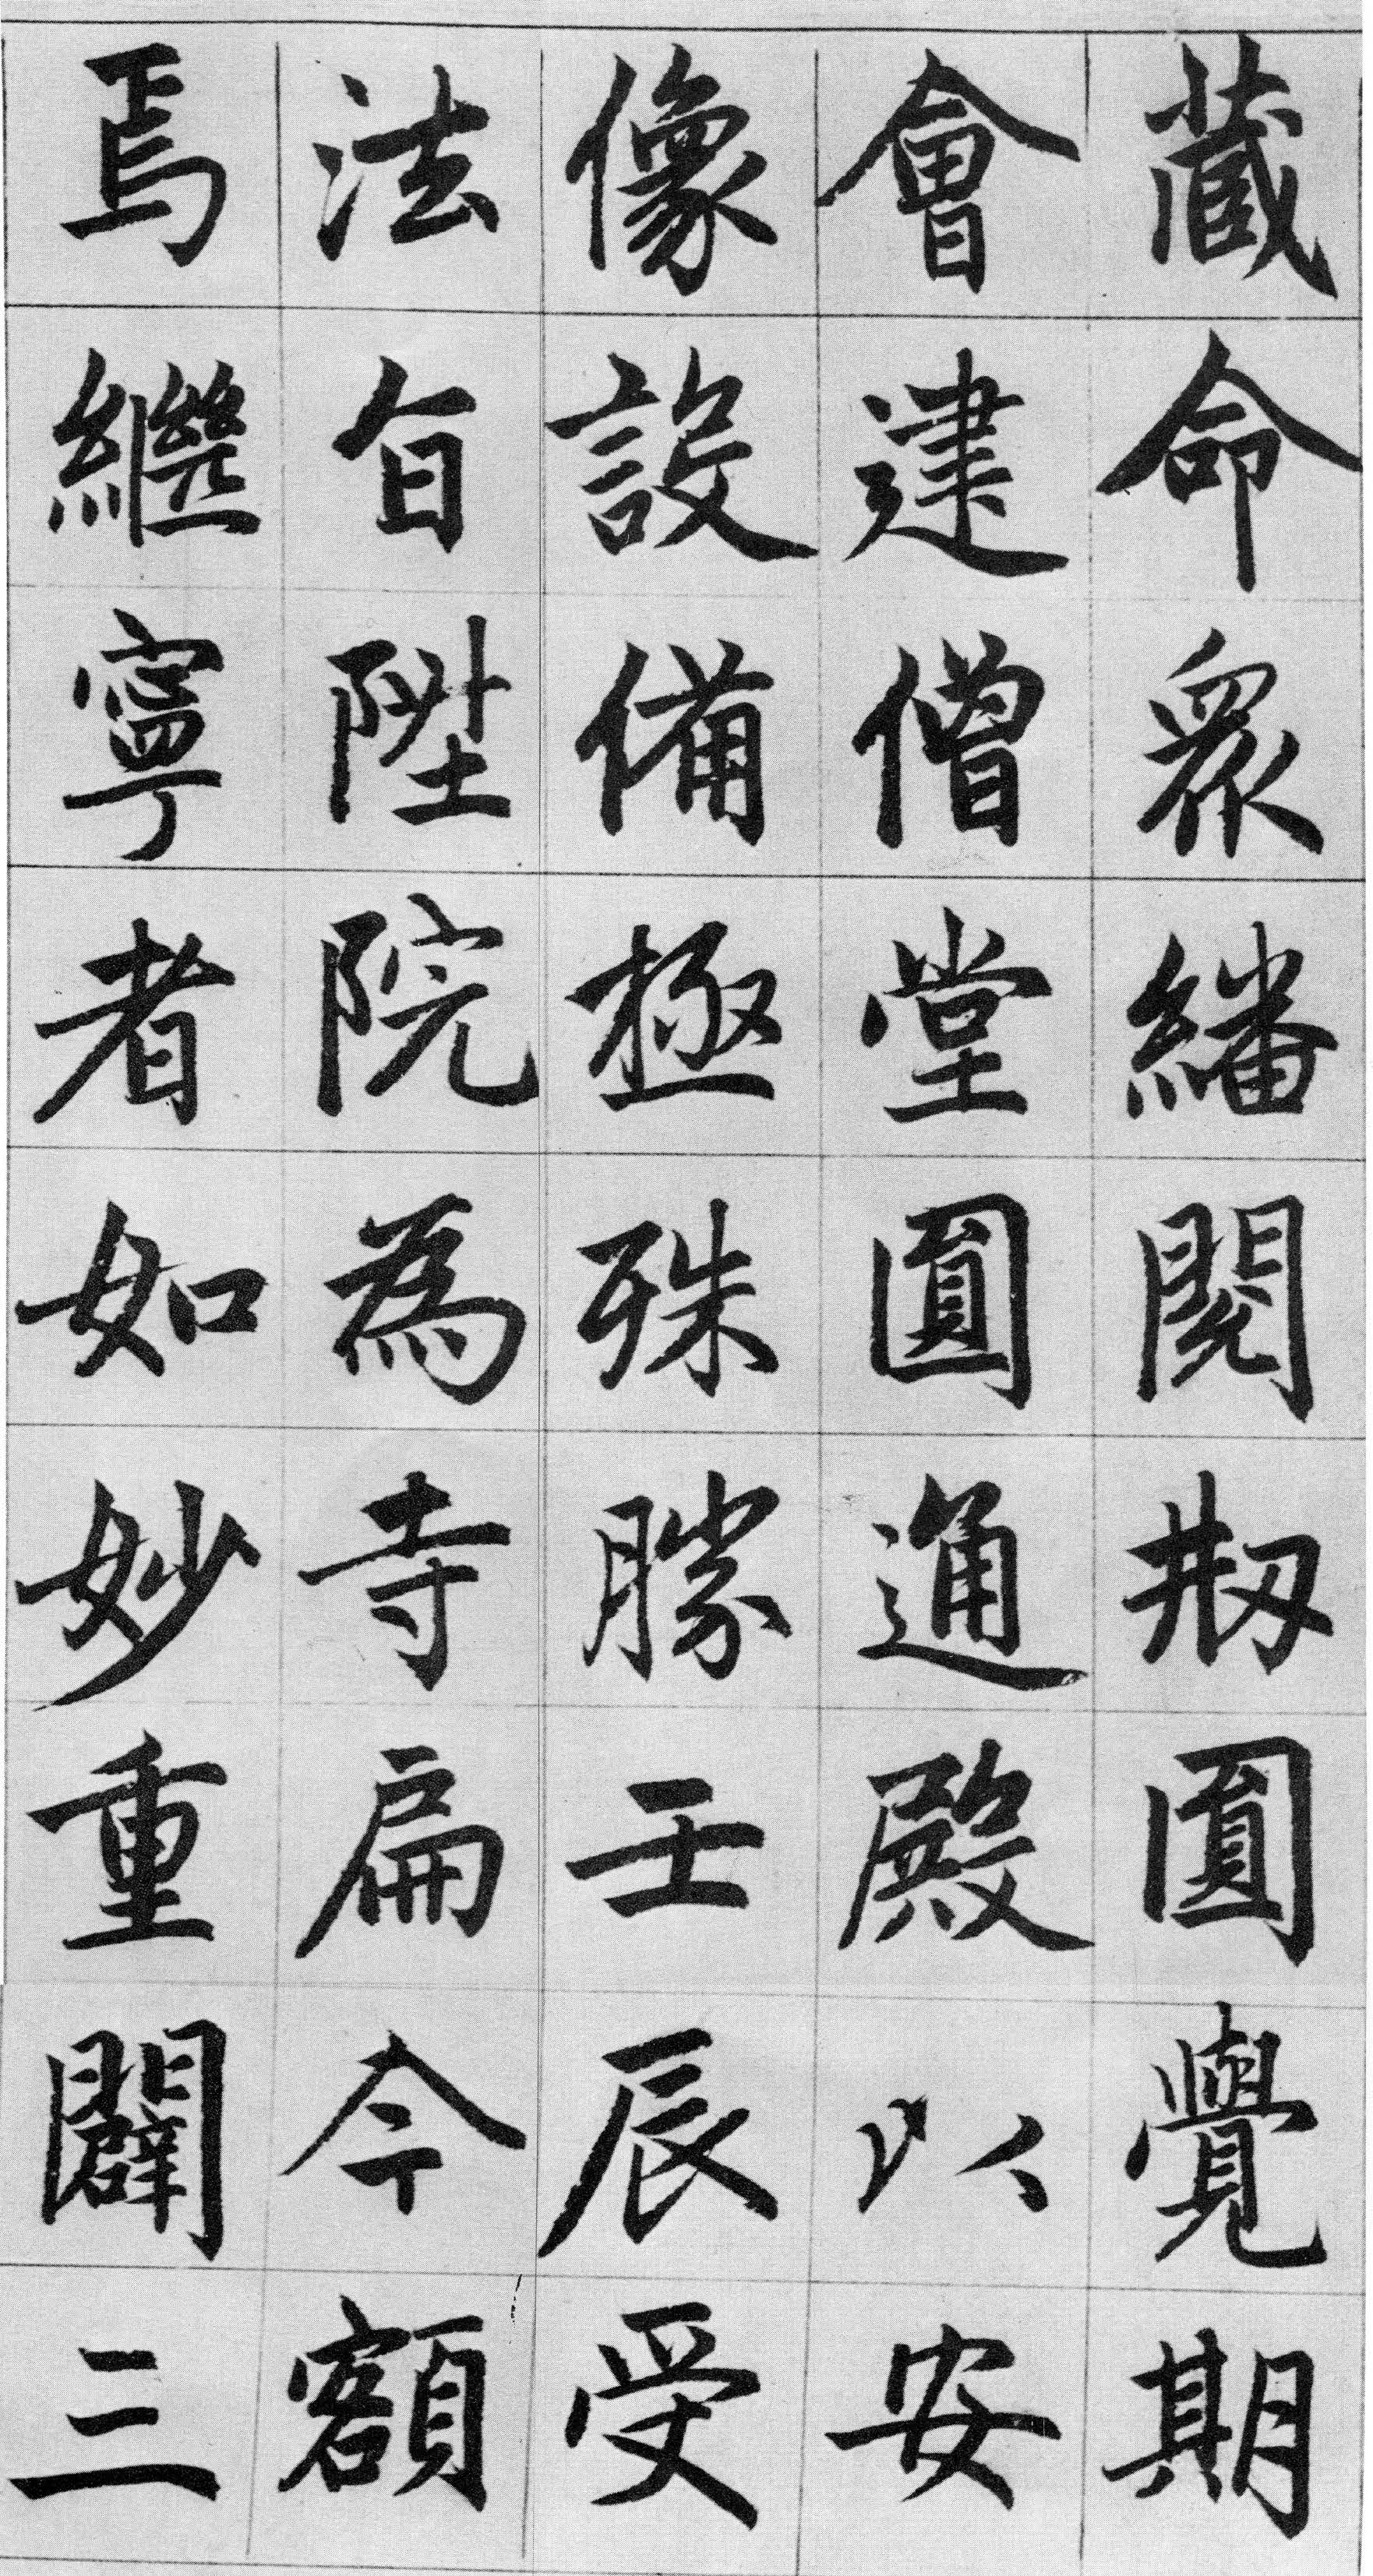 藏命眾繙閱刱圓覺期
會建僧堂圓通殿以安
像設備極殊勝壬辰受
法旨陞院為寺扁今額
焉繼寧者如妙重闢三